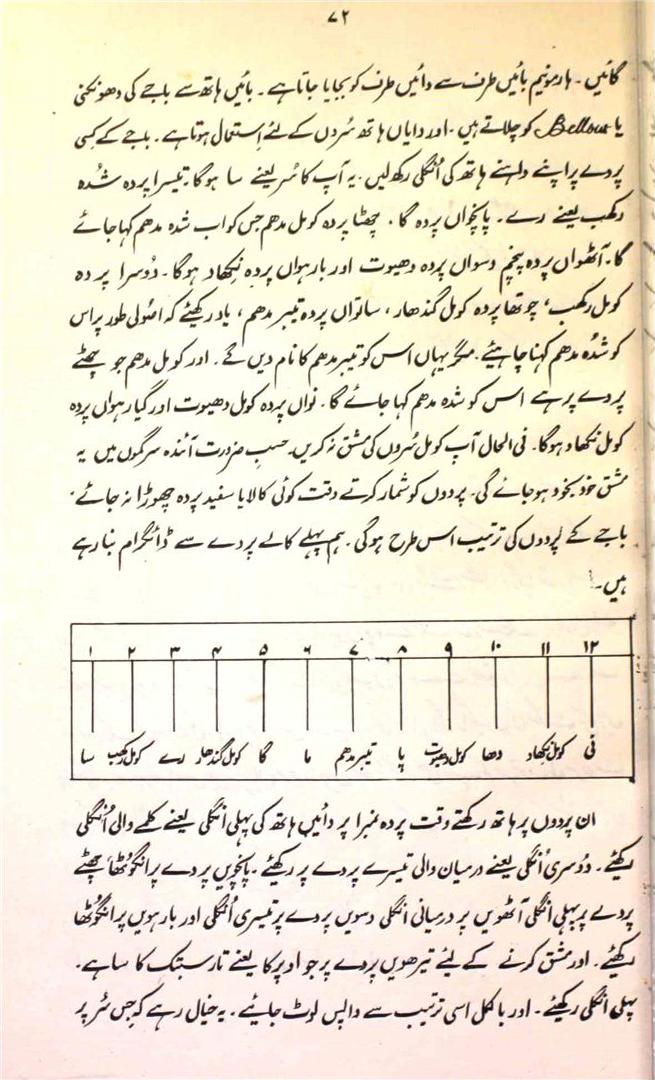 ۷۲
گائیں۔ ہارمونیم بائیں طرف سے دائیں طرف کو بجایا جاتا ہے۔ بائیں ہاتھ سے باجے کی دھونکنی
یا Bellows کو چلاتے ہیں۔ اور دایاں ہاتھ سُردں کے لئے اِستعمال ہوتا ہے۔ باجے کے کِسی
پردے پر اپنے داہنے ہاتھ کی اُنگلی رکھ لیں۔ یہ آپ کا سُر یعنے سا ہوگا۔ تیسرا پردہ شُدہ
رکھب یعنے رے۔ پانچواں پردہ گا۔ چھٹا پردہ کومل مدھم جس کو اب شدہ مدھم کہا جائے
گا۔ آٹھواں پردہ پنچم دسواں پردہ دھیوت اور بارہواں پردہ نِکھاد ہوگا۔ دُوسرا پردہ
کومل رکھب، چوتھا پردہ کومل گندھار، ساتواں پردہ تیبر مدھم، یاد رکھیئے کہ اصُولی طور پر اس
کو شُدہ مدھم کہنا چاہیئے۔ مگر یہاں اس کو تیبر مدھم کا نام دیں گے۔ اور کومل مدھم جو چھٹے
پردے پر ہے اس کو شدہ مدھم کہا جائے گا۔ نواں پردہ کومل دھیوت اور گیارہواں پردہ
کومل نکھاد ہوگا۔ فی الحال آپ کومل سُروں کی مشق نہ کریں۔ حسبِ ضرورت آئندہ سرگموں میں یہ
مشق خود بخود ہو جائے گی۔ پردوں کو شمار کرتے وقت کوئی کالا یا سفید پردہ چھوڑا نہ جائے۔
باجے کے پَردوں کی ترتیب اس طرح ہوگی۔ ہم پہلے کالے پردے سے ڈائگرام بنا رہے
ہیں۔
۱ ۲ ۳ ۴ ۵ ۶ ۷ ۸ ۹ ۱۰ ۱۱ ۱۲
سا کومل رکھب رے کومل گندھار گا ما تیبر مدھم پا کومل دھیوت دھا کومل نکھاد نی
ان پردوں پر ہاتھ رکھتے وقت پردہ نمبر۱ پر دائیں ہاتھ کی پہلی انگلی یعنے کلمے والی اُنگلی
رکھیئے۔ دُوسری اُنگلی یعنے درمیان والی تیسرے پردے پر رکھیئے۔ پانچویں پردے پر انگوٹھا چھٹے
پردے پر پہلی انگلی آٹھویں پر درمیانی انگلی دسویں پردے پر تیسری اُنگلی اور بارہویں پر انگوٹھا
رکھیئے۔ اور مشق کرنے کے لئے تیرھویں پردے پر جو اوپر کا یعنے تار سبتک کا سا ہے۔
پہلی انگلی رکھیئے۔ اور بالکل اسی ترتیب سے واپس لوٹ جائیے۔ یہ خیال رہے کہ جس سُر پر